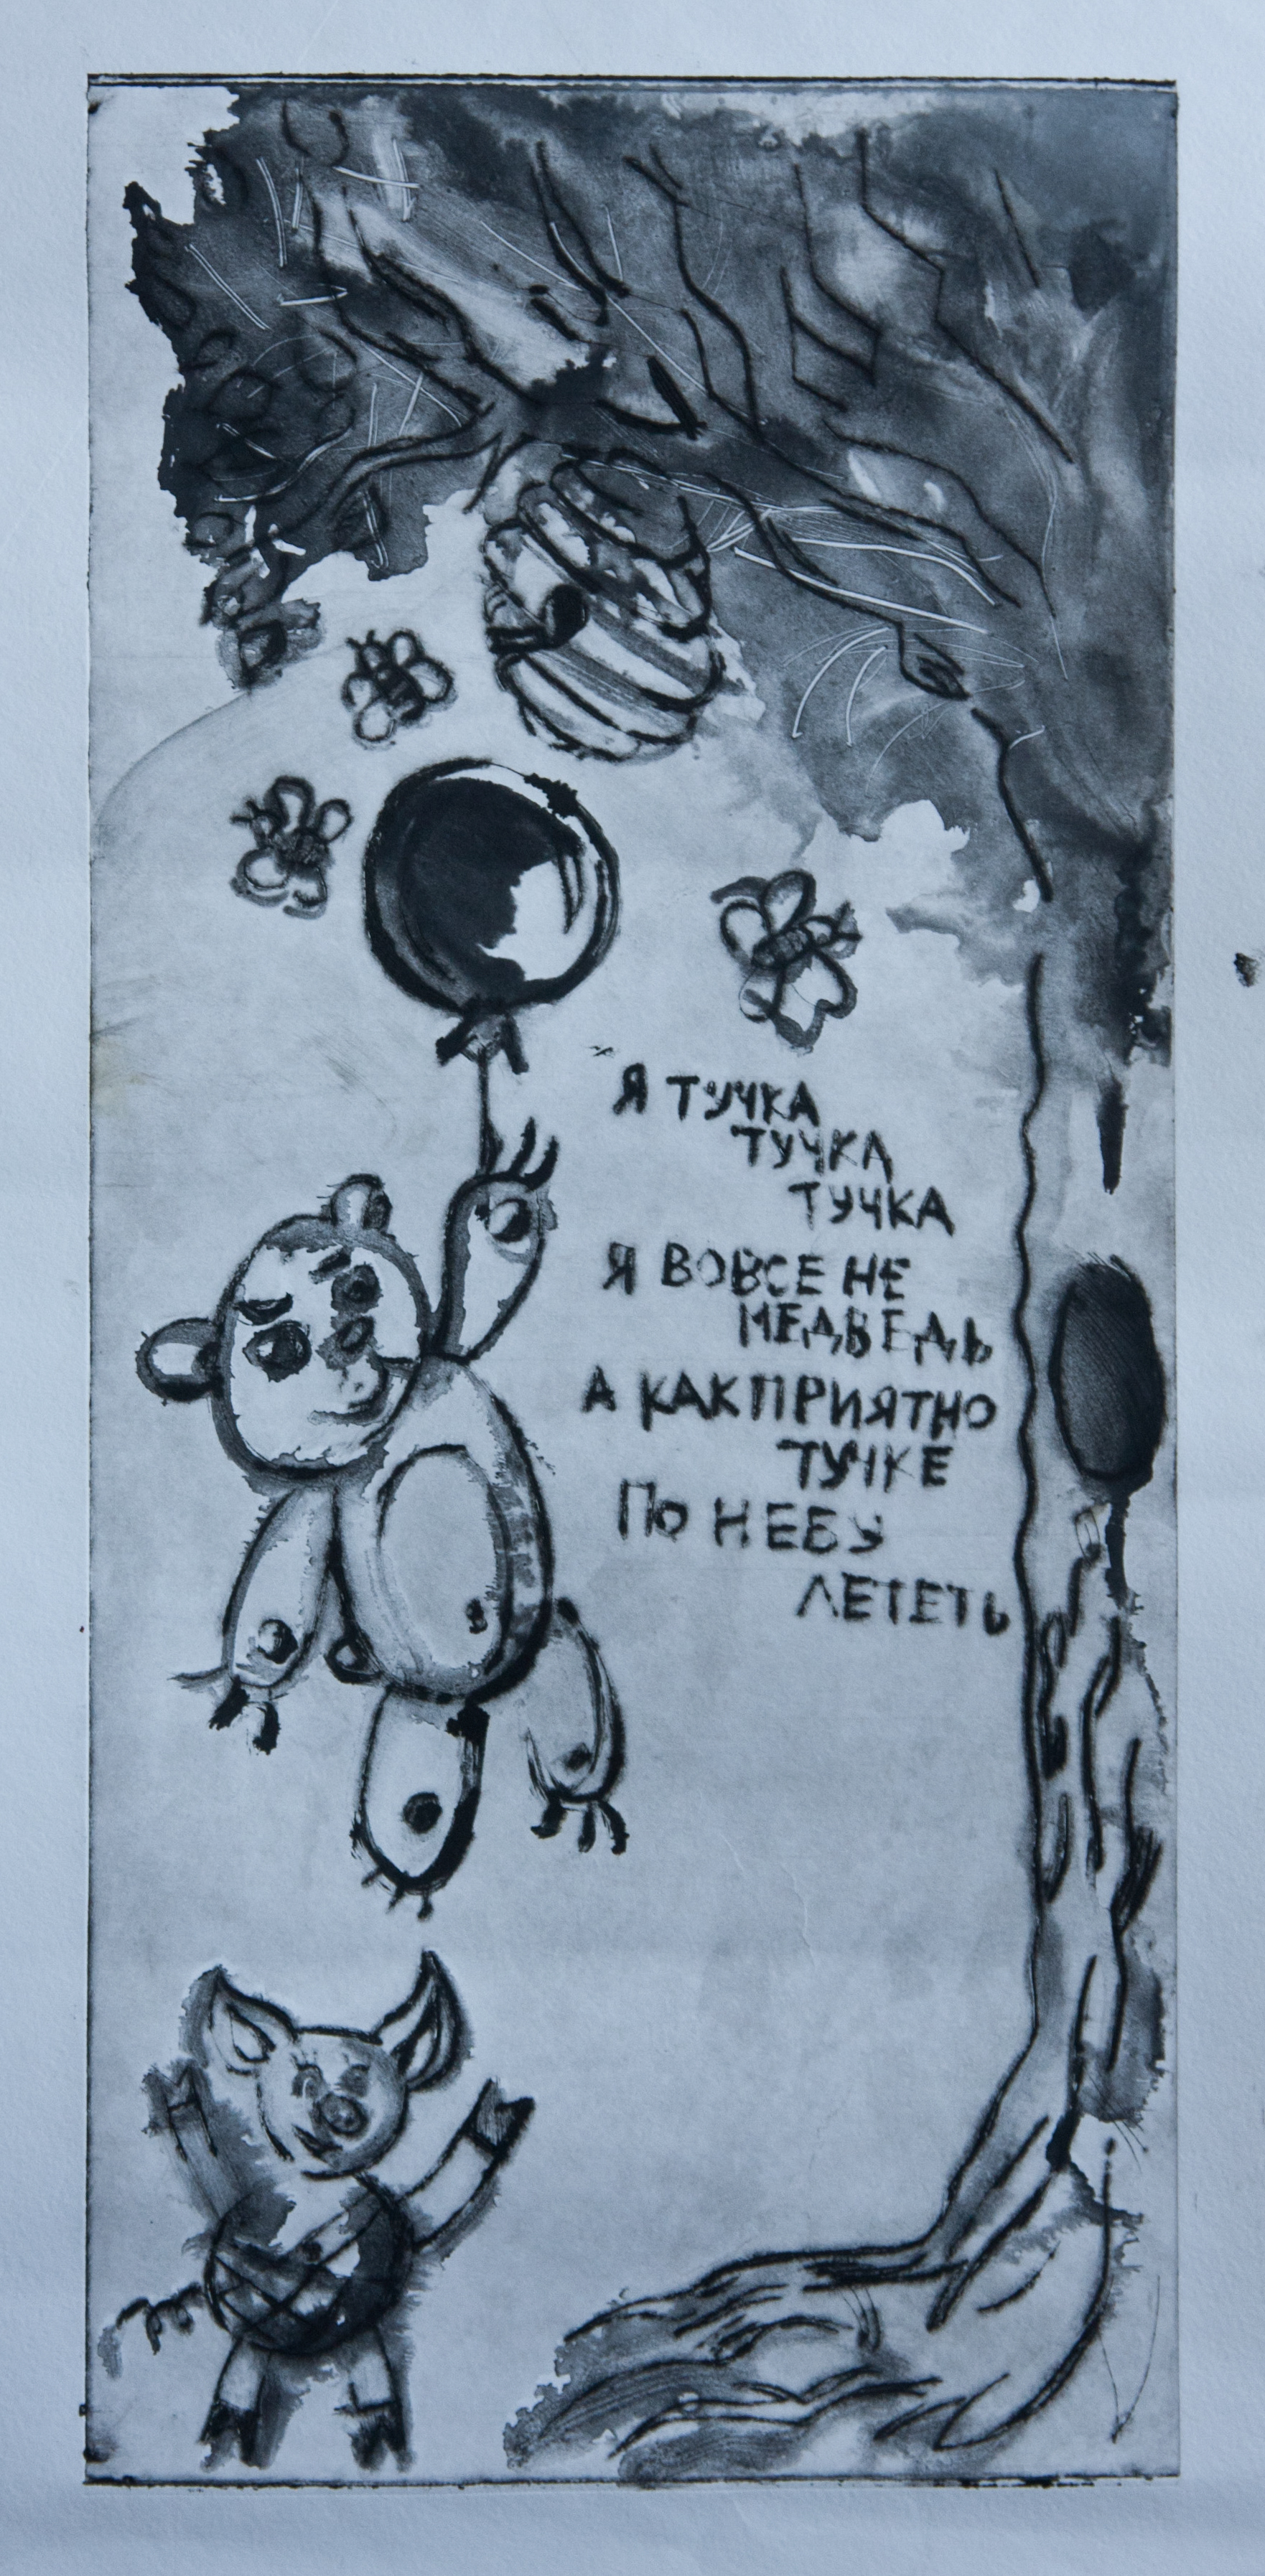 Я ТУЧКА
ТУЧКА
ТУЧКА
Я ВОВСЕ НЕ
МЕДВЕДЬ
А КАК ПРИЯТНО
ТУЧКЕ
ПО НЕБУ
ЛЕТЕТЬ